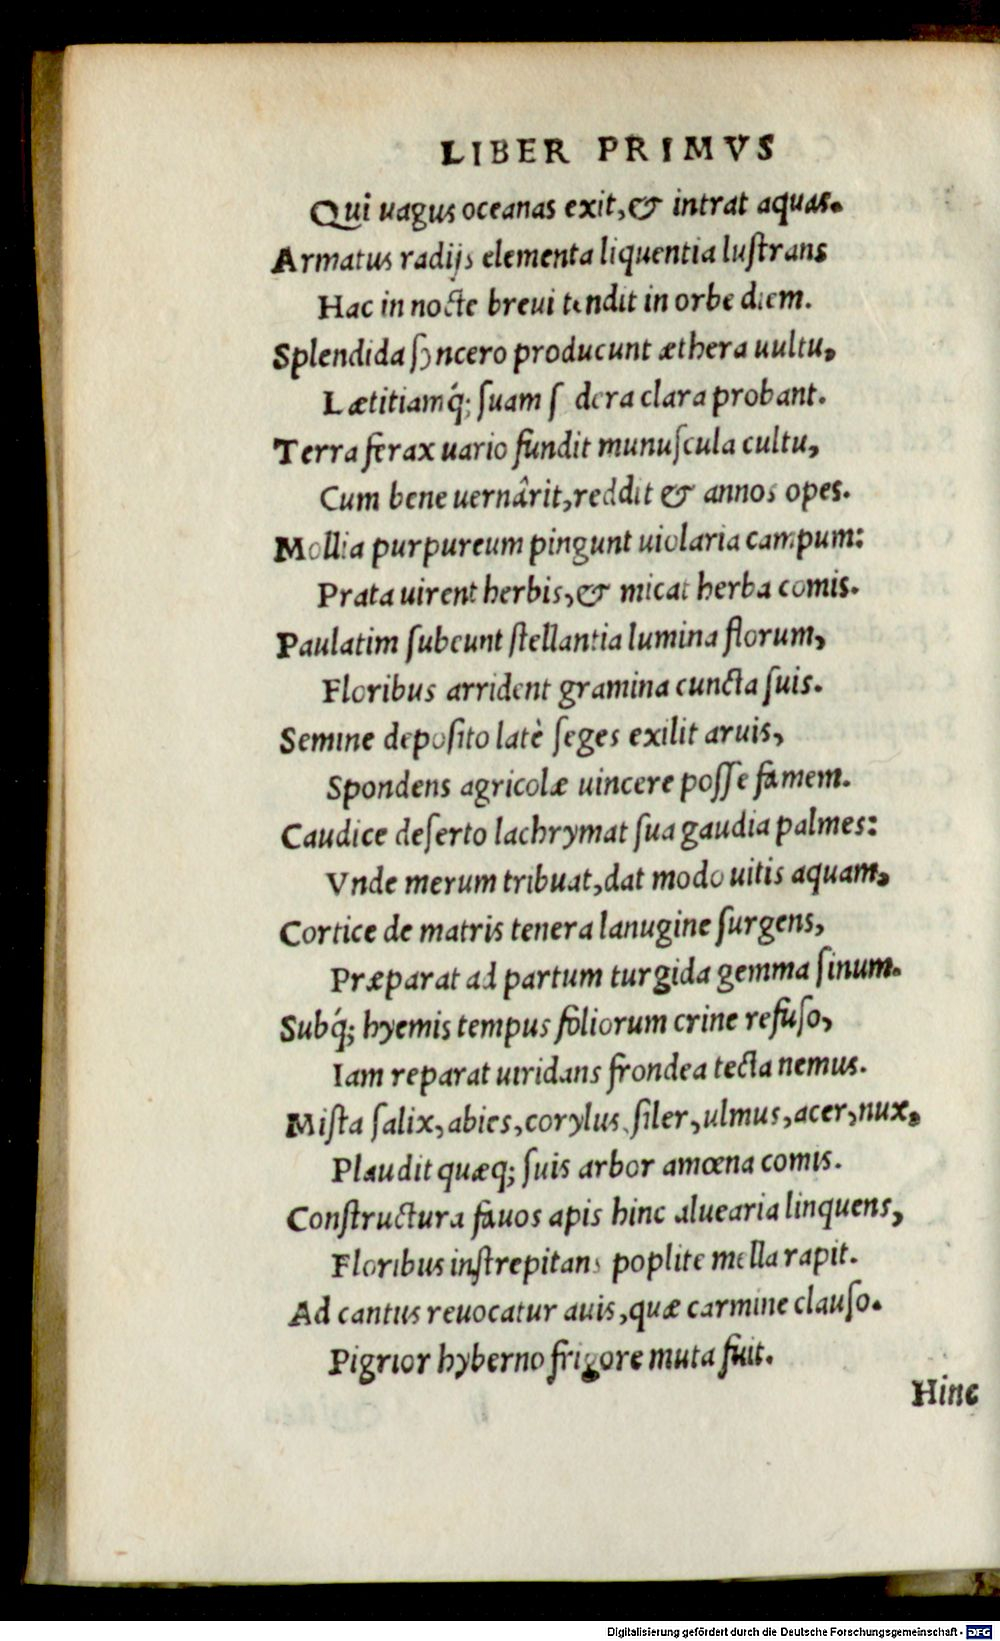 LIBER PRIMVS
Qui uagus oceanas exit, & intrat aquas.
Armatus radijs elementa liquentia luſtrans
Hac in nocte breui tendit in orbe diem.
Splendida ſyncero producunt æthera uultu,
Lætitiamq́; ſuam ſydera clara probant.
Terra ferax uario fundit munuſcula cultu,
Cum bene uernârit, reddit & annos opes.
Mollia purpureum pingunt uiolaria campum:
Prata uirent herbis, & micat herba comis.
Paulatim ſubeunt ſtellantia lumina florum,
Floribus arrident gramina cuncta ſuis.
Semine depoſito latè ſeges exilit aruis,
Spondens agricolæ uincere poſſe famem.
Caudice deſerto lachrymat ſua gaudia palmes:
Vnde merum tribuat, dat modo uitis aquam,
Cortice de matris tenera lanugine ſurgens,
Præparat ad partum turgida gemma ſinum.
Subq́; hyemis tempus foliorum crine refuſo,
Iam reparat uiridans frondea tecta nemus.
Miſta ſalix, abies, corylus, ſiler, ulmus, acer, nux,
Plaudit quæq; ſuis arbor amœna comis.
Conſtructura fauos apis hinc aluearia linquens,
Floribus inſtrepitans poplite mella rapit.
Ad cantus reuocatur auis, quæ carmine clauſo.
Pigrior hyberno frigore muta fuit.
Hinc
Digitalisierung gefördert durch die Deutsche Forschungsgemeinschaft - DFG